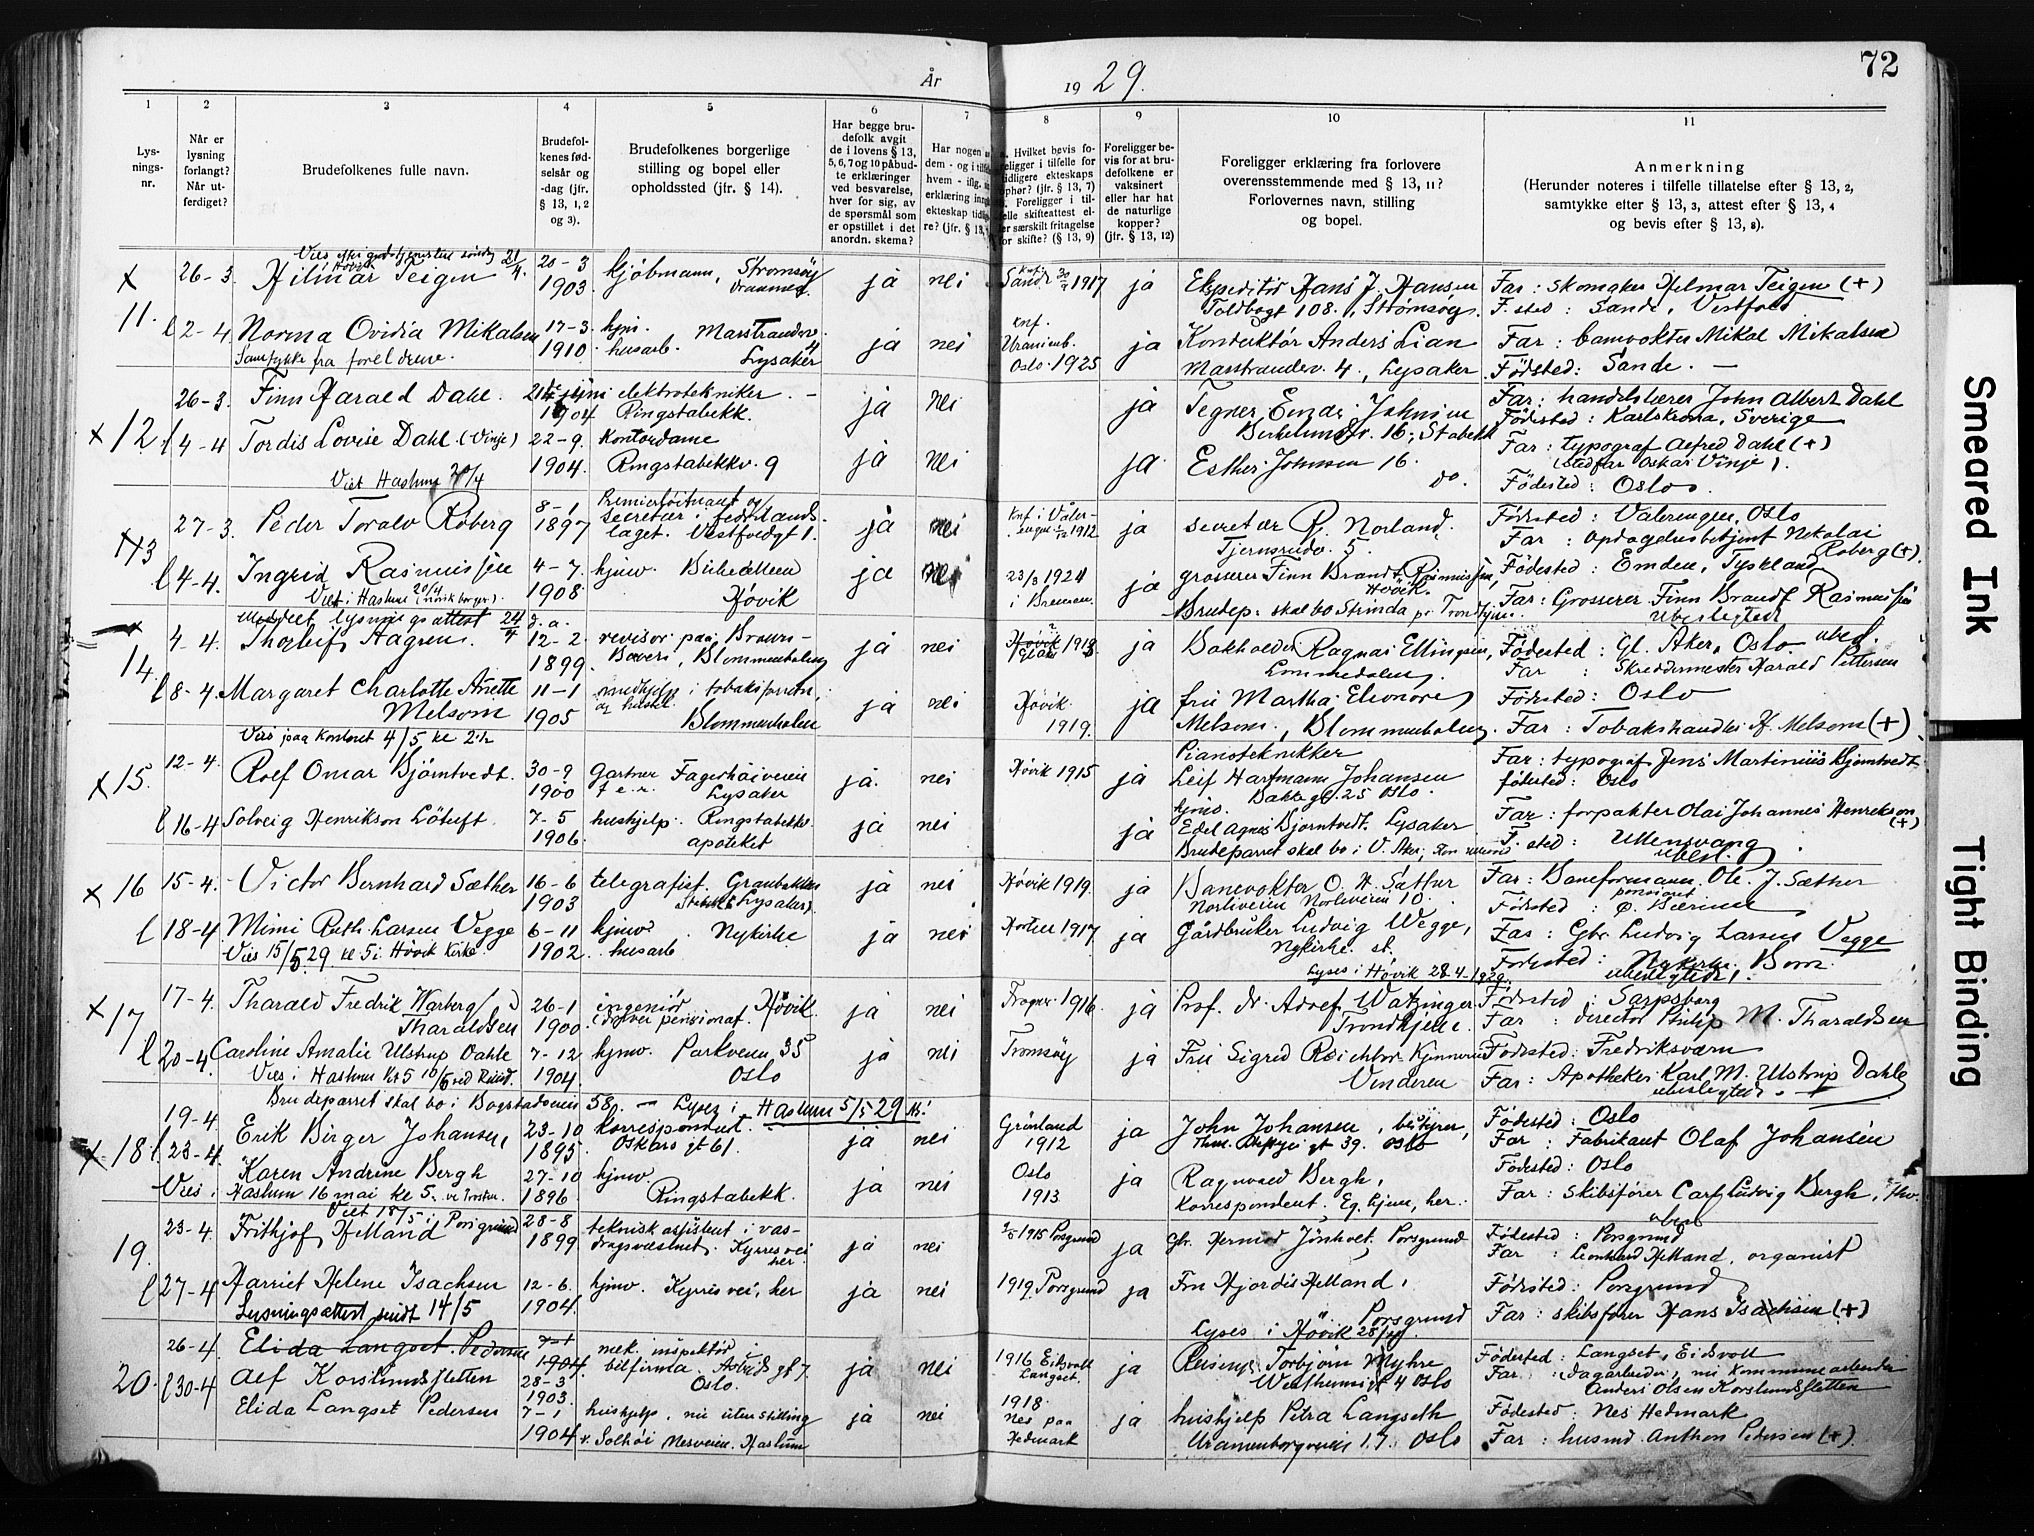 72
År 1929.
1
Lys-
nings-
nr.
2
Når er
lysning
forlangt?
Når ut-
ferdiget?
3
Brudefolkenes fulle navn.
4
Brudefol-
kenes fød-
selsår og
-dag (jfr.
§ 13, 1, 2
og 3).
5
Brudefolkenes borgerlige
stilling og bopel eller
opholdssted (jfr. § 14).
6
Har begge bru-
defolk avgit
de i lovens § 13,
5, 6, 7 og 10 påbud-
te erklæringer
ved besvarelse,
hver for sig, av
de spørsmål som
er opstillet i det
anordn. skema?
7
Har nogen
dem - og i
hvem - iflg.
erklæring
ekteskap
re? (jfr. § 13,
8
Hvilket bevis fo-
religger i tilfelle for
tidligere ekteskaps
ophør? (jfr. § 13, 7)
Foreligger i til-
felle skifteattest el-
ler særskilt fritagelse
for skifte? (§ 13, 9)
9
Foreligger be-
vis for at bru-
defolkene er
vaksinert
eller har hat
de naturlige
kopper?
(jfr. § 13, 12)
10
Foreligger erklæring fra forlovere
overensstemmende med § 13, 11?
Forlovernes navn, stilling
og bopel.
11
Anmerkning
(Herunder noteres i tilfelle tillatelse efter § 13, 2,
samtykke efter § 13, 3, attest efter § 13, 4
og bevis efter § 13, 8).
x 11. 26-3. Hilmar Teigen 20-3 1903. kjøbmann, Strømsøy Drammen. ja nei Sande 1917 ja Ekspeditør Hans J. Hansen Far: Skomaker Hilmar Teigen (+)
Toldbogt 108, Strømsøy. F. sted: Sande, Vestfold
2-4 Norma Ovidia Mikalsen 17-3. 1910. hjm. husarb. Marstranderv. 4 Lysaker ja nei knf. Uranienb. Oslo 1925 ja Konduktør Anders Lian Far: banevokter Mikal Mikalsen
Samtykke fra foreldrene. Marstranderv. 4, Lysaker. Fødested: Sande.
x 12. 26-3. Finn Harald Dahl. 1904 elektrotekniker. Ringstabekk. ja nei ja Tegner Einar Johnsen Far: handelslærer John Albert Dahl
16, Stabekk Fødested: Karlskrona, Sverige
4-4 Tordis Lovise Dahl (Vinje) 22-9. 1904. Kontordame Ringstabekkv. 9 ja nei ja. Esther Johnsen 16. do. Far: typograf Alfred Dahl (+)
(stedfar Oskar Vinje).
Viet Haslum 20/4 Fødested: Oslo.
x 13 27-3. Peder Toralv Roberg 8-1 1897 Premierløitnant og secretær i fedrelands-laget. Vestfoldgt 1. ja nei Knf i Våler-engen 1912 ja secretær R. Norland. Tjernsrudv. 5. Fødested: Valerengen, Oslo
Far: opdagelsesbetjent Nikolai Roberg (+)
4-4. Ingrid Rasmussen 4-7. 1908 hjmv. Høvik ja nei 23/3 1924 i Bremen. ja grosserer Finn Brandt Rasmussen, Høvik. Fødested: Emden, Tyskland
Viet i Haslum 20/4 Brudep: skal bo Strinda pr Trondhjem. Far: Grosserer Finn Brandt Rasmussen
ubeslegtet
14. lysningsattest 24/4
4-4. Thorleif Hagren. 12-2 1899. revisor paa Brown-Boveri, Blommenholm ja nei ja Bokholder Ragnar Ellingsen, Lommedalen. Fødested: Gl. Aker, Oslo ubesl.
Far: Skreddermester Harald Pettersen
8-4. Margaret Charlotte Anette Melsom 11-1 1905 medhjelp i tobaksforretn, Blommenholm ja nei Høvik 1919. ja fru Martha Eleonore Melsom, Blommenholm. Fødested: Oslo
Far: Tobakshandler H. Melsom (+)
Vies paa Kontoret 4/5 kl 2.
x 15. 12-4. Rolf Omar Bjørntvedt. 30-9 1900 Gartner Fagerhøiveien Lysaker ja. nei Høvik 1915 ja Pianotekniker Leif Hartmann Johansen Bakkegt. 25 Oslo. Far: typograf Jens Martinius Bjørntvedt
fødested: Oslo
16-4 Solveig Henrikson Løtuft. 7-5 1906. hushjelp. Ringstabekk apoteket ja nei ja Edel Agnes Bjørntvedt, Lysaker Far: forpakter Olai Johannes Henrikson (+)
Brudeparret skal bo i V. Aker, F. sted: Ullensvang
ubesl.
x 16 15-4. Victor Bernhard Sæther 16-6 1903 telegrafist. Granbakken Stabekk (Lysaker). ja nei Høvik 1919. ja Banevokter O. H. Sæther Norliveien 10. Far: Baneformann Ole J. Sæther pensionert
Fødested: Ø. Bærum
18-4. Mimi Ruth Larsen Vegge 6-11 1902. hjmv. husarb Nykirke ja nei Horten 1917 ja Gårdbruker Ludvig Vegge, Nykirke st. Far: Gbr. Ludvig Larsen Vegge
Vies 15/5.29 kl 5 i Høvik Kirke. Fødested: Nykirke Borre
ubeslegtede.
Lyses i Høvik 28-4-1929
x 17 17-4. Tharald Fredrik Warberg Tharaldsen 26-1 1900. ingeniør (driver pensionat. Høvik. ja nei Trogner 1916. ja Prof. Dr. Adolf Watzinger Trondhjem. Fødested: Sarpsborg
Far: director Philip M. Tharaldsen
20-4. Caroline Amalie Ulstrup Dahle 7-12 1904. hjmv. Parkveien 35 Oslo ja nei Tromsøy ja Fru Sigrid Reichborn-Kjennerud Vinderen Fødested: Fredriksværn
Vies i Haslum kl 5 10/5 ved Ruud. Far: Apotheker Karl M. Ulstrup Dahle
ubeslegtede.
Brudeparret skal bo i Bogstadveien 58. — Lyses i Haslum 5/5 29
x 18. 19-4. Erik Birger Johansen 23-10 1895. korrespondent. Oskars gt 61. ja nei Grønland 1912 ja John Johansen, bestyrer, gt 39. Oslo Fødested: Oslo
Far: Fabrikant Olaf Johansen
23-4 Karen Andrine Bergh 27-10 1896. hjmv. Ringstabekk. ja nei Oslo 1913 ja Ragnvald Bergh, korrespondent. Eg. hjem, her. Fødested: Oslo
Vies i Haslum 16 mai kl 5. Far: Skibsfører Carl Ludvig Bergh,
Viet 18/5 i Porsgrund
19. 23-4. Frithjof Helland 28-8 1899 teknisk assistent i vas-dragsvæsnet. Kyrresvei her. ja nei 1915 Porsgrund ja Gbr. Jønholt, Porsgrund Fødested: Porsgrund
Far: Leonhard Helland, organist
27-4 Harriet Helene Isachsen 12-6. 1904. hjmv. Kyrresvei, her ja nei 1919 Porsgrund ja Frk Hjørdis Helland, Porsgrund Fødested: Porsgrund
Lysningsattest sendt 14/5 Far: skibsfører Hans Isachsen (+)
Lyses i Høvik 28/4.
20. 26-4. Elida Langset Pedersen 7-1 1904
30-4 Alf Korslundsletten 28-3 1903. mek. inspektør bilfirma. Astrids gt 7 Oslo. ja nei 1916 Eidsvoll Langset. ja Torbjørn Myhre 4 Oslo Fødested: Langset, Eidsvoll
Far: Dagarbeider, nu kommunearbeider Anders Olsen Korslundsletten
Elida Langset Pedersen 7-1 1904 hushjelp, nu uten stilling Solhøi Nesveien. Haslum ja nei 1918. Nes paa Hedmark ja hushjelp Petra Langseth Uranienborgveien 17. Oslo Fødested: Nes Hedmark
Far: husmd. Anthon Pedersen (+).
Smeared Ink
Tight Binding